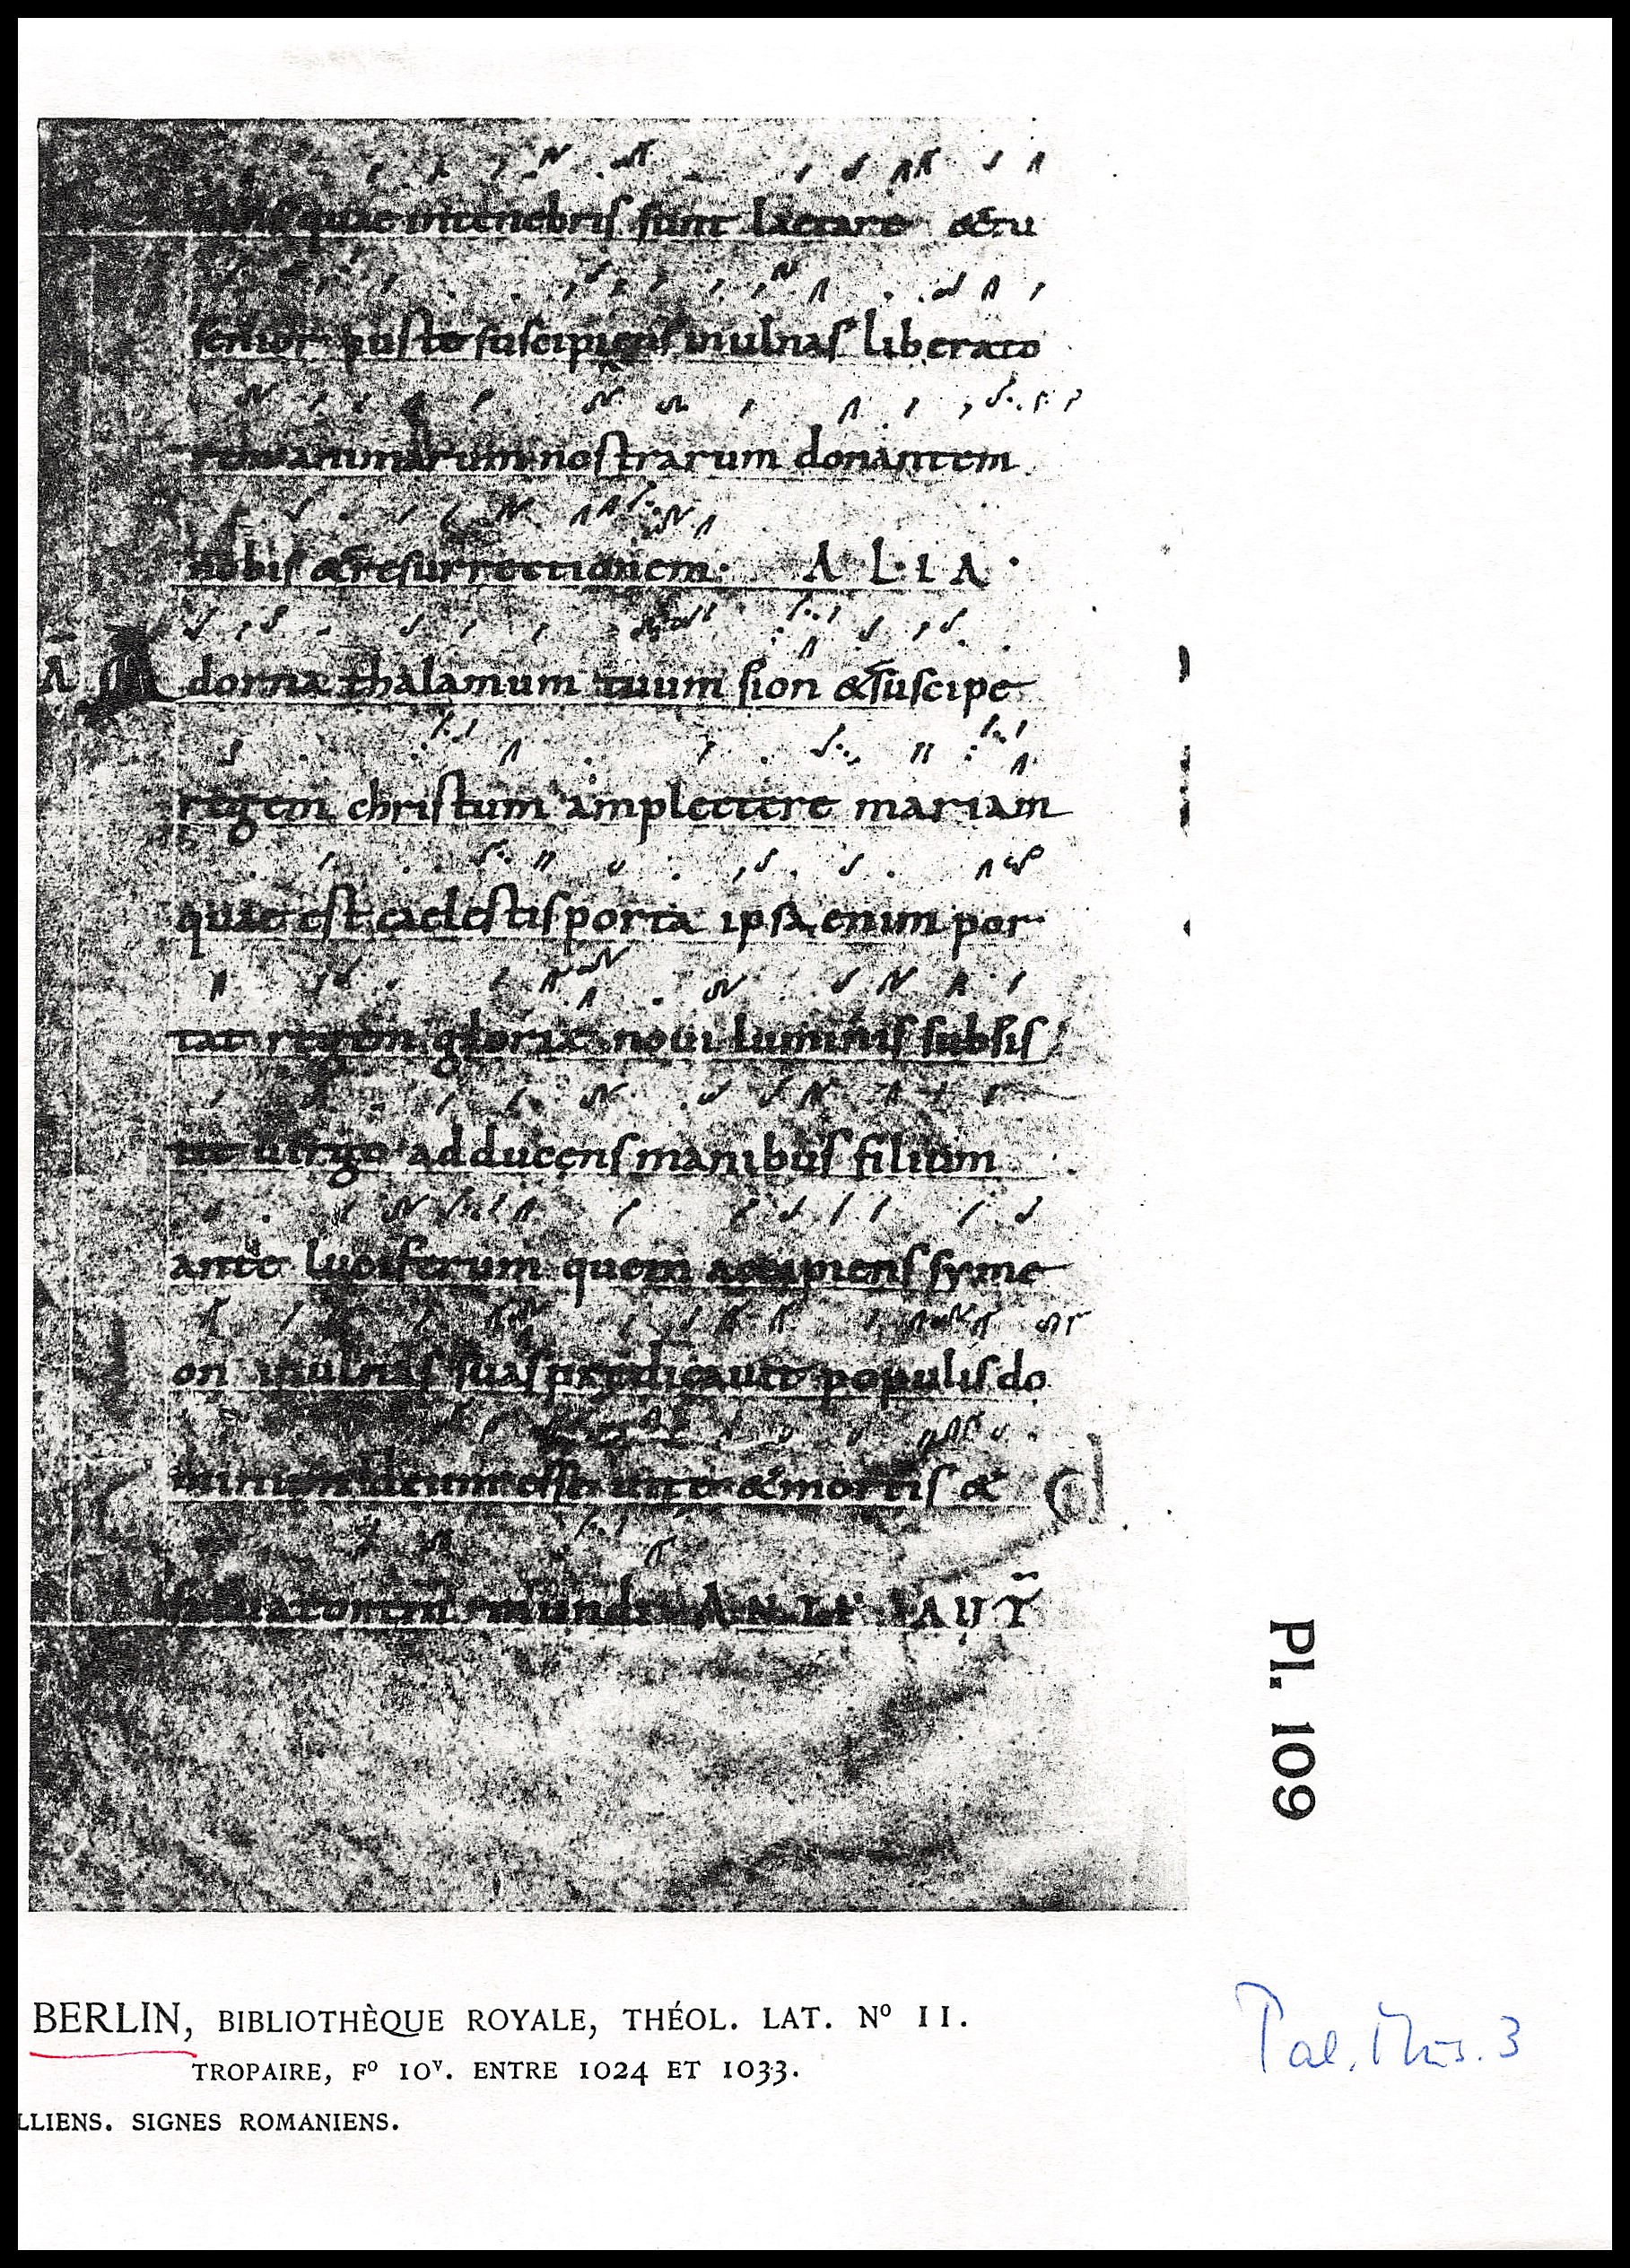 quae intenebris sunt laetare &tu
senior iuste suscipiens inulnas liberato
rem animarum nostrarum donantem
nobis &resurrectionem· ALIA·
Ā Adorna thalamum tuum sion &suscipe
regem christum amplectere mariam
quae est caelestis porta ipsa enim por
tat regem gloriae noui luminis subsis
tit uirgo adducens manibus filium
ante luciferum quem accipiens syme
on inulnas suas predicauit populis do
minum deum esse uite &mortis &
mundi
d
Pl. 109
BERLIN, BIBLIOTHÈQUE ROYALE, THÉOL. LAT. Nº 11.
TROPAIRE, Fº 10ᵛ. ENTRE 1024 ET 1033.
LLIENS. SIGNES ROMANIENS.
Pal. Mus. 3